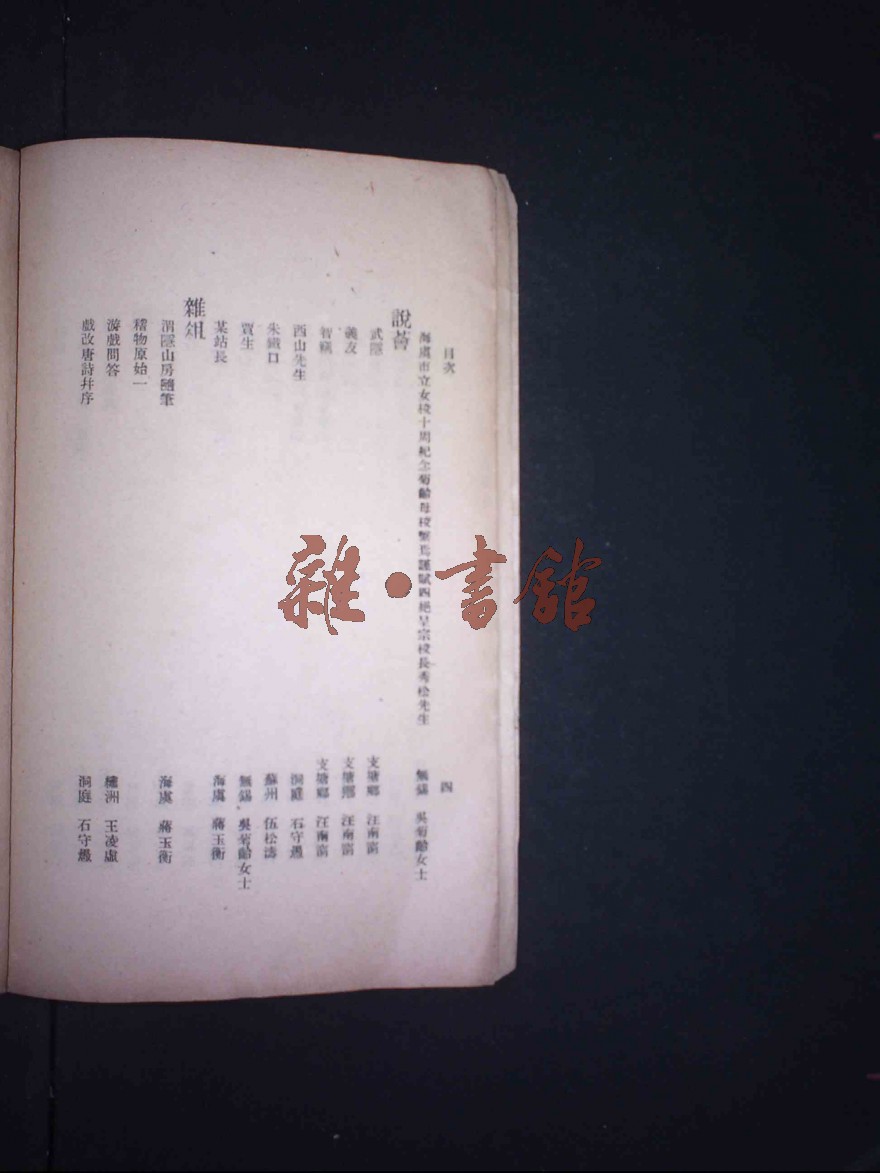 目次 四
海虞市立女校十周紀念菊齡母校繫焉謹賦四絕呈宗校長秀松先生 無錫 吳菊齡女士
說薈
武隱 支塘鄉 汪南
義友 支塘鄉 汪南
智 支塘鄉 汪南
西山先生 洞庭 石守愚
朱鐵口 蘇州 伍松濤
賈生 無錫 吳菊齡女士
某站長 海虞 蔣玉衡
雜俎
渭隱山房隨筆 海虞 蔣玉衡
稽物原始一
游戲問答 橋洲 王凌虛
戲改唐詩幷序 洞庭 石守愚
雜·書館